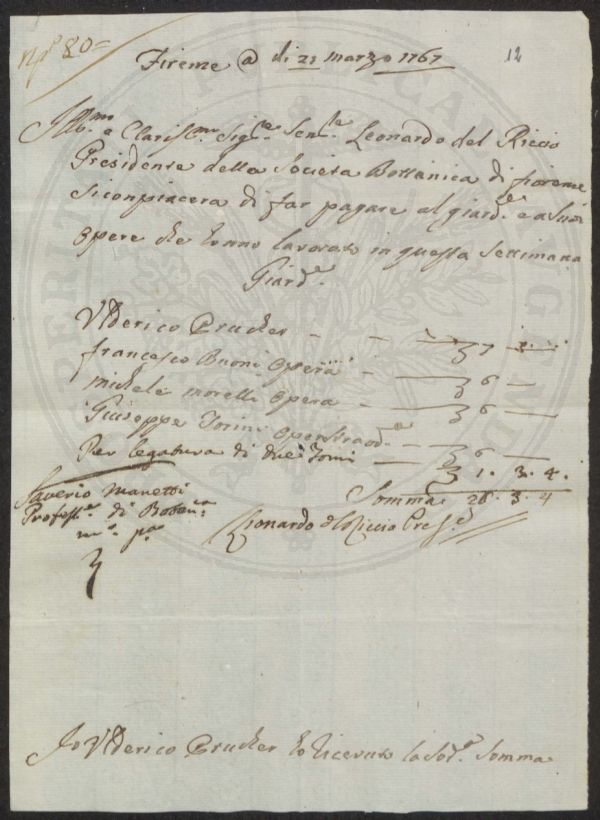 N.º 80=
12
Firenze @ di 21 marzo 1767
Ill.mo e Claris.mo Sig.re Sen.re Leonardo del Riccio
Presidente della Societa Bottanica di fiorenze
Siconpiacera di far pagare al giard.e e a Suoi
Opere che konno lavorato in questa Settimana
Giard.e
Ulderico Prucker - - 7
francesco Buoni Opera - 6 —
Michele morelli Opera - 6 —
Giuseppe Torini Operstraord.a - 6 —
Per legatura di due Tomi — 1. 3. 4.
Saverio Manetti Somma 26. 3. 4
Profess.e di Botan.ca Leonardo del Riccio Pres.e
m.o p.a
Jo Ulderico Prucker ho ricevuto la Sod.a Somma